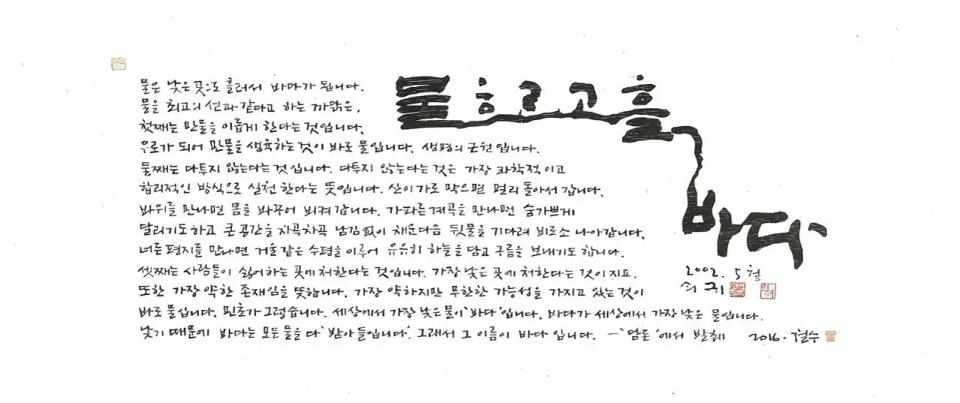 물은 낮은 곳으로 흘러서 바다가 됩니다.
물을 최고의 선과 같다고 하는 까닭은,
첫째는 만물을 이롭게 한다는 것입니다.
우로가 되어 만물을 생육하는 것이 바로 물입니다. 생명의 근원입니다.
둘째는 다투지 않는다는 것입니다. 다투지 않는다는 것은 가장 과학적이고
합리적인 방식으로 실천한다는 뜻입니다. 산이 가로막으면 멀리 돌아서 갑니다.
바위를 만나면 몸을 바꾸어 비켜 갑니다. 가파른 계곡을 만나면 숨가쁘게
달리기도 하고 큰 공간을 차곡차곡 남김 없이 채운 다음 뒷물을 기다려 비로소 나아갑니다.
너른 평지를 만나면 거울 같은 수평을 이루어 유유히 하늘을 담고 구름을 보내기도 합니다.
셋째는 사람들이 싫어하는 곳에 처한다는 것입니다. 가장 낮은 곳에 처한다는 것이지요.
또한 가장 약한 존재임을 뜻합니다. 가장 약하지만 무한한 가능성을 가지고 있는 것이
바로 물입니다. 민초가 그렇습니다. 세상에서 가장 낮은 물이 '바다'입니다. 바다가 세상에서 가장 낮은 물입니다.
낮기 때문에 바다는 모든 물을 다 '받아들입니다'. 그래서 그 이름이 바다입니다. — '담론'에서 발췌 2016. 철수
물 흐르고 흘
바다
2002. 5월
쇠귀